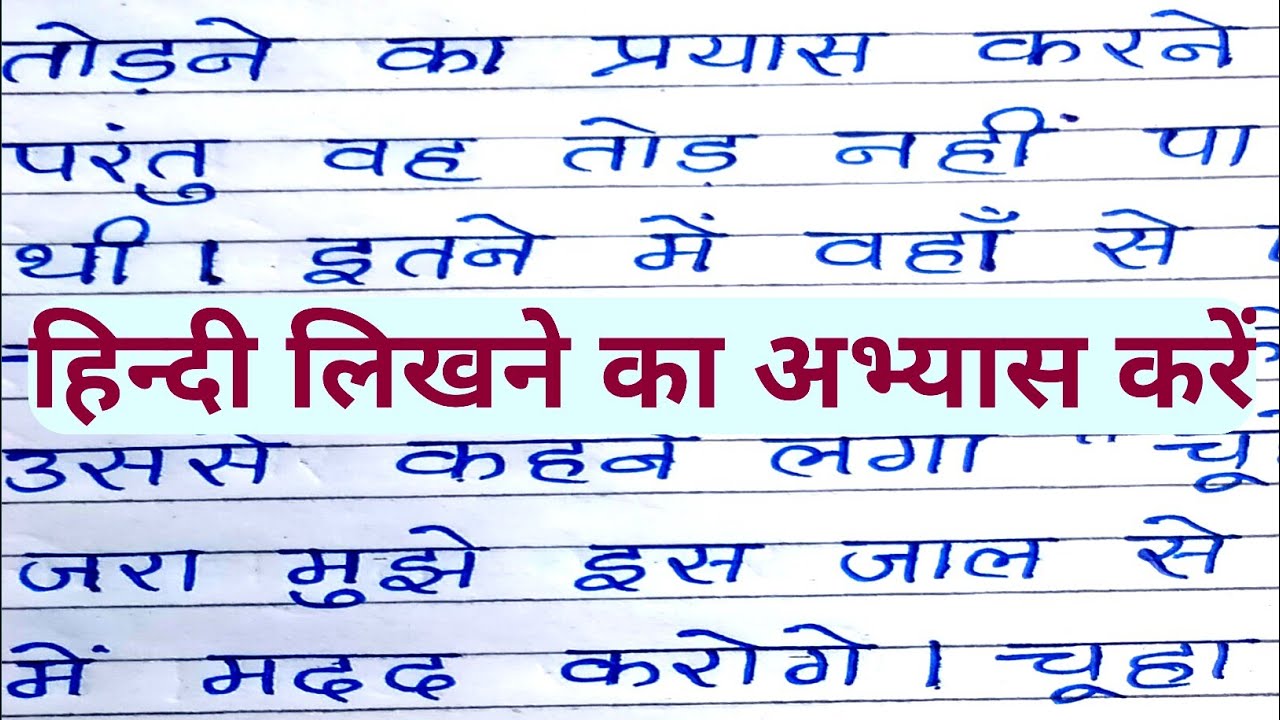 तोड़ने का प्रयास करने
परंतु वह तोड़ नहीं पा
थी। इतने में वहाँ से
हिन्दी लिखने का अभ्यास करें
उससे कहने लगा "
जरा मुझे इस जाल से
में मदद करोगे। चूहा